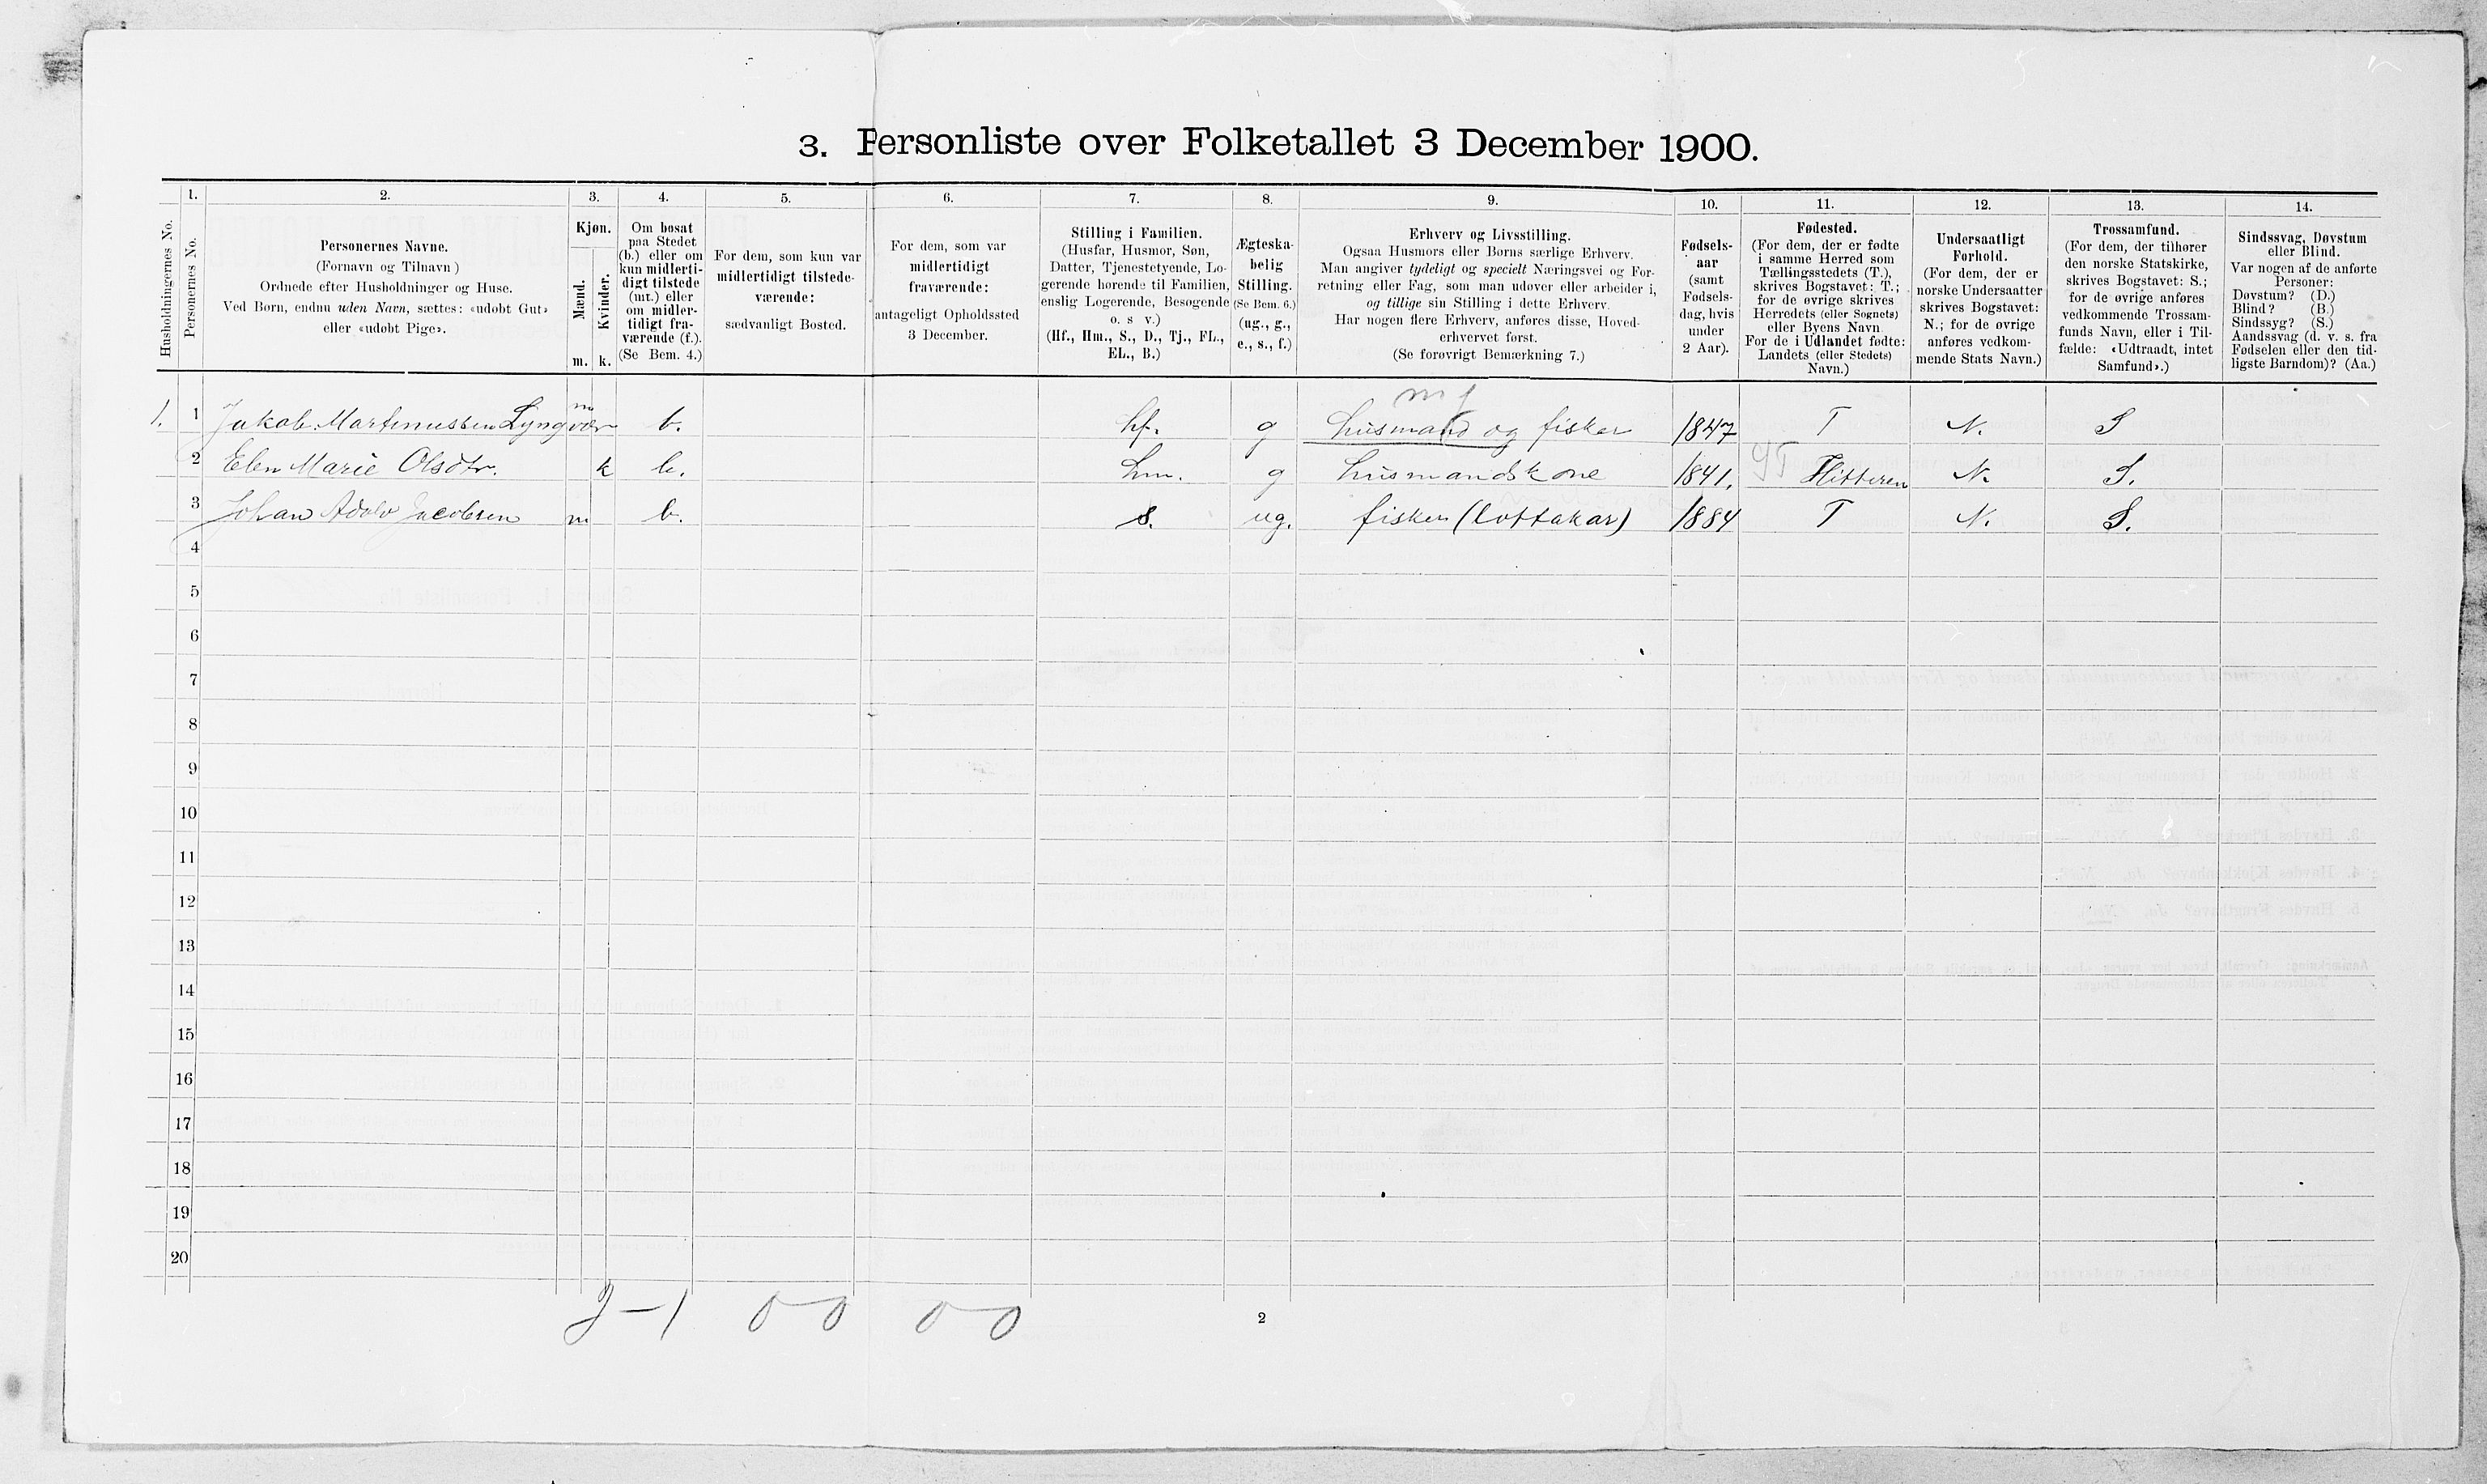 3. Personliste over Folketallet 3 December 1900.
Husholdningernes No.
1.
Personernes No.
2.
Personernes Navne.
(Fornavn og Tilnavn)
Ordnede efter Husholdninger og Huse.
Ved Børn, endnu uden Navn, sættes: «udøbt Gut»
eller «udøbt Pige».
3.
Kjøn.
Mænd.
Kvinder.
m. k.
4.
Om bosat
paa Stedet
(b.) eller om
kun midlerti-
digt tilstede
(mt.) eller
om midler-
tidigt fra-
værende (f.).
(Se Bem. 4.)
5.
For dem, som kun var
midlertidigt tilstede-
værende:
sædvanligt Bosted.
6.
For dem, som var
midlertidigt
fraværende:
antageligt Opholdssted
3 December.
7.
Stilling i Familien.
(Husfar, Husmor, Søn,
Datter, Tjenestetyende, Lo-
gerende hørende til Familien,
enslig Logerende, Besøgende
o. s v.)
(Hf., Hm., S., D., Tj., FL.,
EL., B.)
8.
Ægteska-
belig
Stilling.
(Se Bem. 6.)
(ug., g.,
e., s., f.)
9.
Erhverv og Livsstilling.
Ogsaa Husmors eller Børns særlige Erhverv.
Man angiver tydeligt og specielt Næringsvei og For-
retning eller Fag, som man udøver eller arbeider i,
og tillige sin Stilling i dette Erhverv.
Har nogen flere Erhverv, anføres disse, Hoved-
erhvervet først.
(Se forøvrigt Bemærkning 7.)
10.
Fødsels-
aar
(samt
Fødsels-
dag, hvis
under
2 Aar).
11.
Fødested.
(For dem, der er fødte
i samme Herred som
Tællingsstedets (T.),
skrives Bogstavet: T.;
for de øvrige skrives
Herredets (eller Sognets)
eller Byens Navn
For de i Udlandet fødte:
Landets (eller Stedets)
Navn.)
12.
Undersaatligt
Forhold.
(For dem, der er
norske Undersaatter
skrives Bogstavet:
N.; for de øvrige
anføres vedkom-
mende Stats Navn.)
13.
Trossamfund.
(For dem, der tilhører
den norske Statskirke,
skrives Bogstavet: S.;
for de øvrige anføres
vedkommende Trossam-
funds Navn, eller i Til-
fælde: «Udtraadt, intet
Samfund».)
14.
Sindssvag, Døvstum
eller Blind.
Var nogen af de anførte
Personer:
Døvstum? (D.)
Blind? (B.)
Sindssyg? (S.)
Aandssvag (d. v. s. fra
Fødselen eller den tid-
ligste Barndom)? (Aa.)
1. 1 Jakob Martinussen Lyngvær m b. hf. g husmand og fisker 1847 T N. S
2 Elen Marie Olsdtr. k b. hm. g husmandskone 1841. Hitteren N. S.
3 Johan Adolv Jacobsen m b. s. ug. fisker (lottakar) 1884 T N. S.
4
5
6
7
8
9
10
11
12
13
14
15
16
17
18
19
20
2-1 0-0 0-0
2